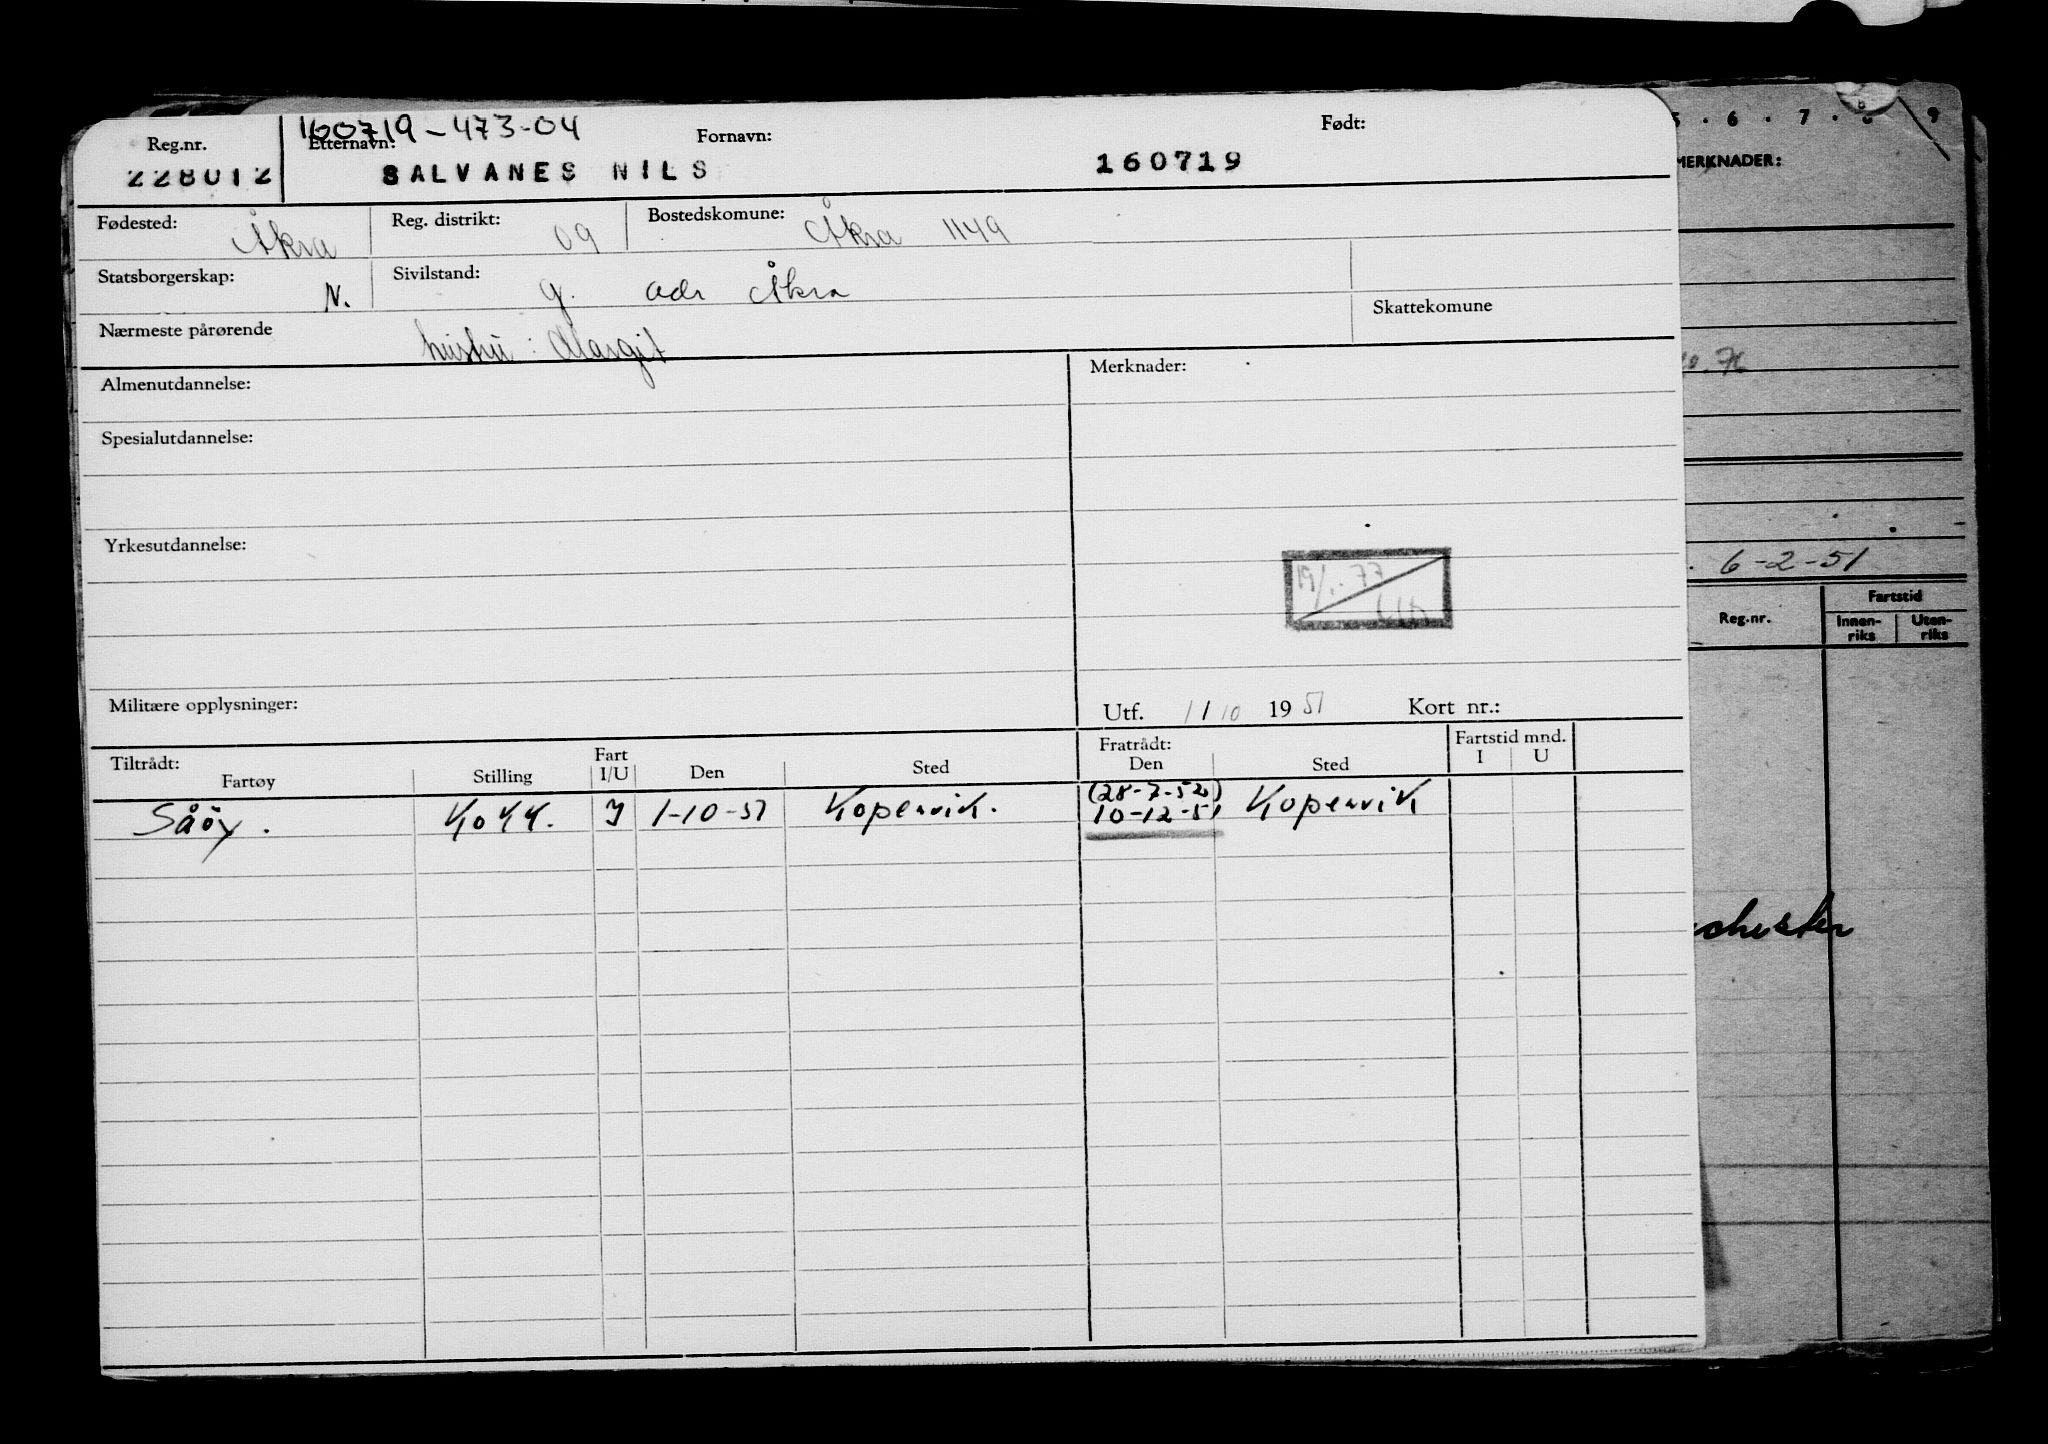 160719-473-04
Reg.nr. Etternavn: Fornavn: Født:
228012 SALVANES NILS 160719
Fødested: Åkra Reg. distrikt: 09 Bostedskomune: Åkra 1149
Statsborgerskap: N. Sivilstand: g. adr Åkra
Nærmeste pårørende hustru: Margit Skattekomune
Almenutdannelse: Merknader:
Spesialutdannelse:
Yrkesutdannelse:
19/1.77
Militære opplysninger: Utf. 1/10 1951 Kort nr.:
Tiltrådt: Fart Fratrådt: Fartstid mnd.
Fartøy Stilling I/U Den Sted Den Sted I U
(28-7-52)
Såöy. Kokk. I 1-10-51 Kopervik. 10-12-51 Kopervik
5 . 6 . 7 . 8 . 9
MERKNADER:
6-2-51
Reg.nr. Fartstid
Innen-riks Uten-riks
chester